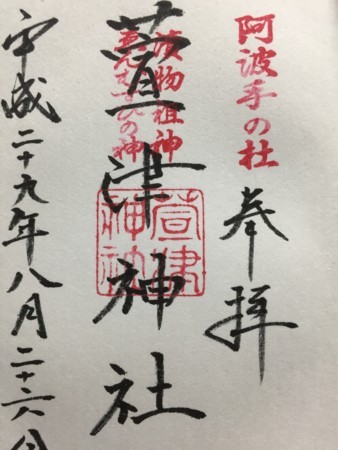 阿波手の杜
奉拝
漬物祖神
えんむすびの神
萱津神社
萱津
神社
平成二十九年八月二十六日